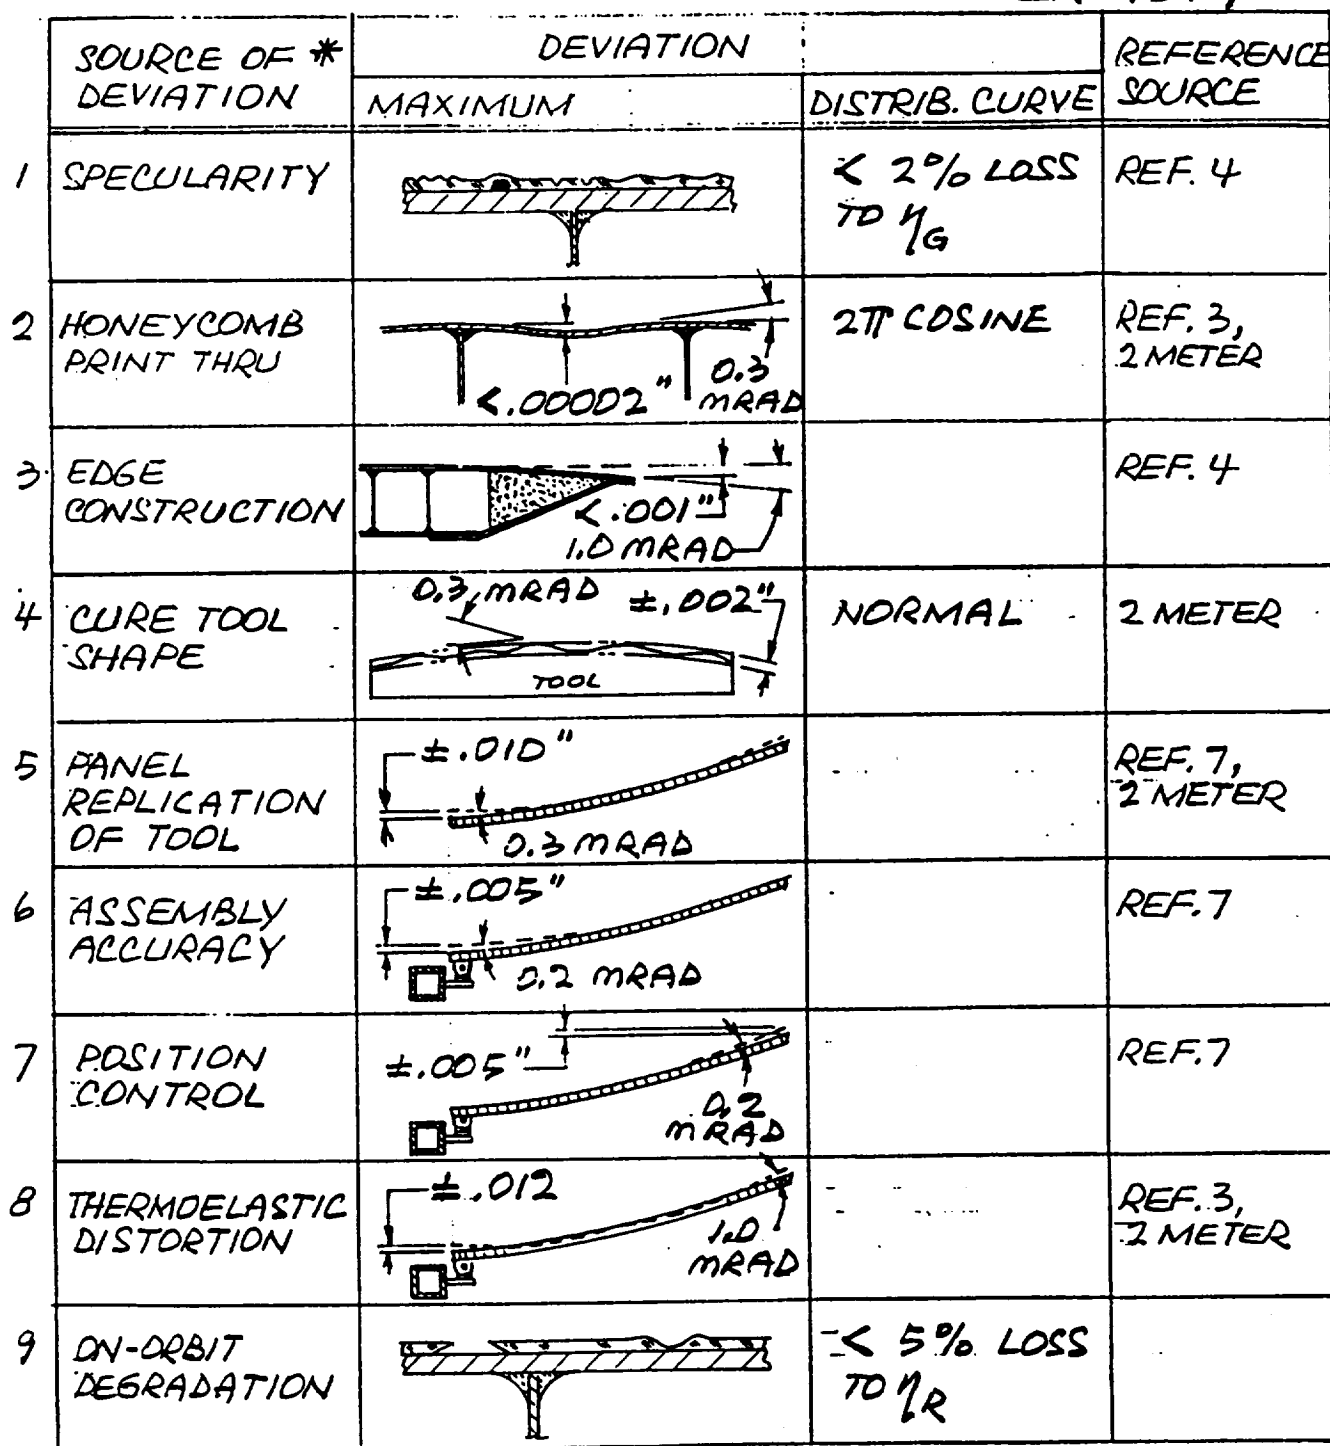 SOURCE OF * DEVIATION
DEVIATION
REFERENCE SOURCE
MAXIMUM
DISTRIB. CURVE
1 SPECULARITY
< 2% LOSS
TO ηG
REF. 4
2 HONEYCOMB
PRINT THRU
<.00002"
0.3
MRAD
2π COSINE
REF. 3,
2 METER
3 EDGE
CONSTRUCTION
<.001"
1.0 MRAD
REF. 4
4 CURE TOOL
SHAPE
0.3 MRAD
±.002"
TOOL
NORMAL
2 METER
5 PANEL
REPLICATION
OF TOOL
±.010"
0.3 MRAD
REF. 7,
2 METER
6 ASSEMBLY
ACCURACY
±.005"
0.2 MRAD
REF. 7
7 POSITION
CONTROL
±.005"
0.2
MRAD
REF. 7
8 THERMOELASTIC
DISTORTION
±.012
1.0
MRAD
REF. 3,
2 METER
9 ON-ORBIT
DEGRADATION
< 5% LOSS
TO ηR